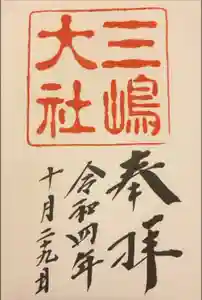 三嶋
大社
奉拝
令和四年
十月二十九日